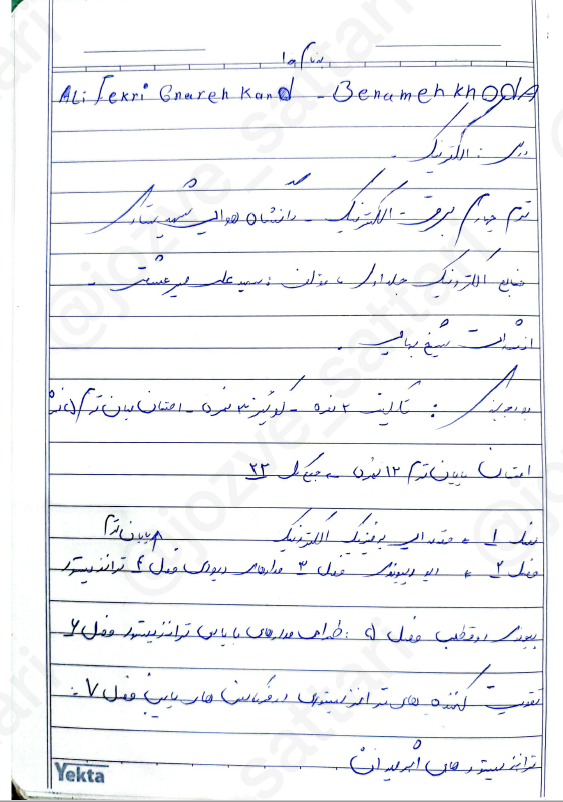 بنام خدا
ALi Fekri Gnareh Kand - Benameh khodA
درس : الکترونیک -
ترم چهارم برق - الکترونیک - دانشگاه هوایی شهید ستاری
منابع الکترونیک جلد اول ، مؤلف : سید علی میرعشقی -
انتشارات شیخ بهایی -
بودجه بندی : تکالیف ۲ نمره - کوئیز ۳ نمره - امتحان میان ترم ۵ نمره
امتحان پایان ترم ۱۲ نمره - جمع کل ۲۲
فصل ۱ ، مقدمه ای بر فیزیک الکترونیک پایان ترم
فصل ۲ ، دیود پیوندی فصل ۳ مدارهای دیودی فصل ٤ ترانزیستور
پیوندی دوقطبی فصل ۵ : طراحی مدارهای بایاس ترانزیستور فصل ۶
تقویت کننده های ترانزیستوری در فرکانس های پایین فصل ۷ :
ترانزیستور های اثر میدان
Yekta
@jozve_sattari